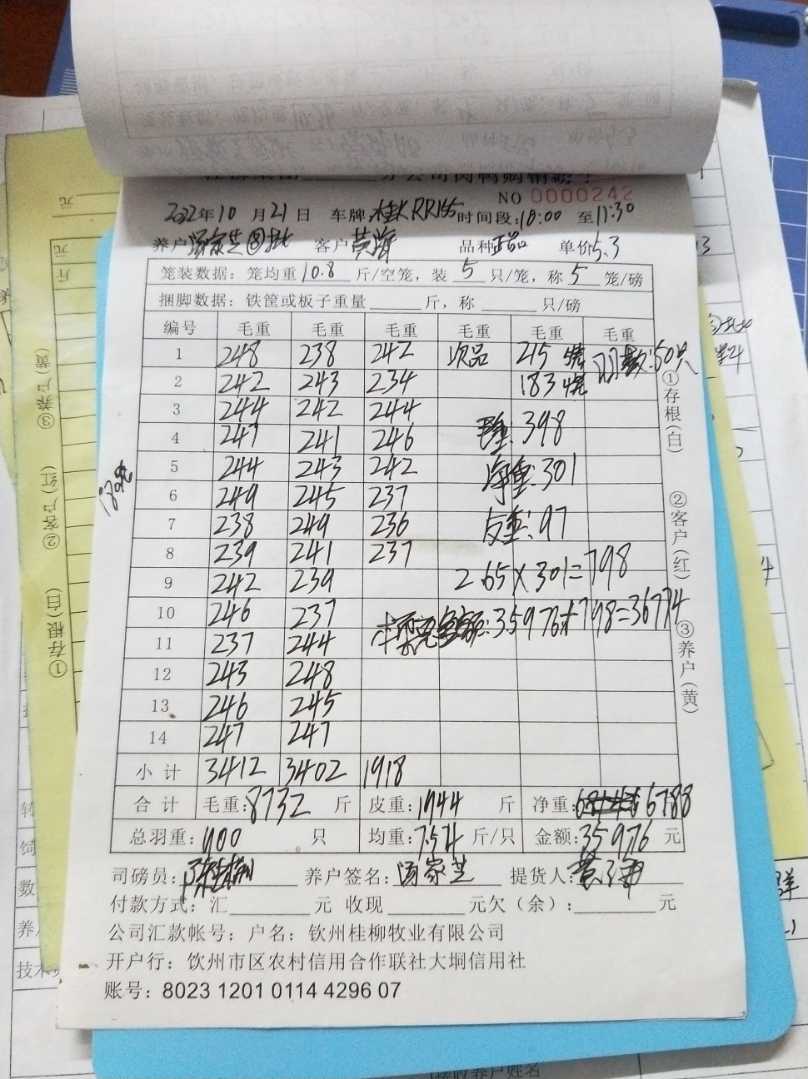 NO 0000242
2022年10月21日 车牌桂 时间段:10:00 至11:30
养户汤家芝 客户黄海 品种正品 单价5.3
笼装数据:笼均重10.8斤/空笼,装5只/笼,称5笼/磅
捆脚数据:铁筐或板子重量 斤,称 只/磅
编号 毛重 毛重 毛重 毛重 毛重 毛重
1 248 238 242 次品 215 羽数:50只
2 242 243 234 183
3 244 242 244
4 247 241 246 毛重:398
5 244 243 242 净重:301
6 249 245 237
7 238 249 236 皮重:97
8 239 241 237
9 242 239 2.65×301=798
10 246 237 :35976+798=36774
11 237 244
12 243 248
13 246 245
14 247 247
小计 3412 3402 1918
合计 毛重:8732 斤 皮重:1944 斤 净重:6788
总羽重:900 只 均重:7.54 斤/只 金额:35976 元
司磅员: 养户签名:汤家芝 提货人:黄海
付款方式:汇 元 收现 元欠(余): 元
公司汇款帐号:户名:钦州桂柳牧业有限公司
开户行:饮州市区农村信用合作联社大垌信用社
账号:8023 1201 0114 4296 07
①存根(白) ②客户(红) ③养户(黄)
①存根(白) ②客户(红) ③养户(黄)